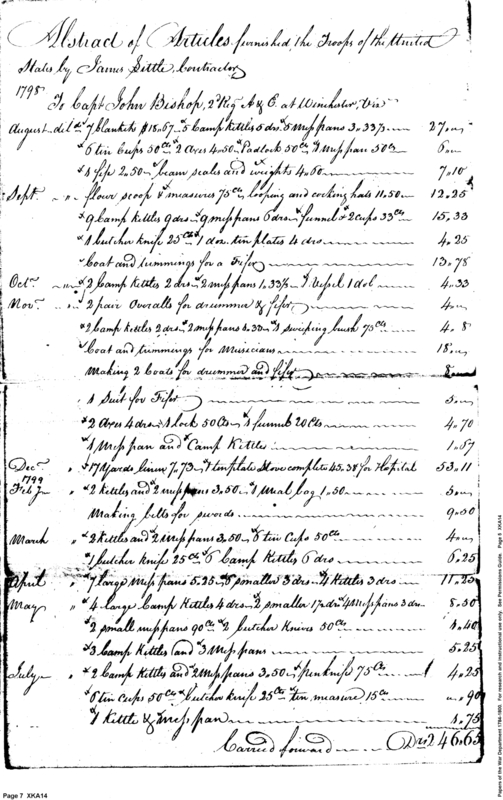 Abstract of Articles furnished the Troops of the United
States by James Little Contractor
1798
To Capt John Bishop, 2d Regt A & E. at Winchester, Via
August del'd 7 blankets $18.67 5 Camp Kettles 5 drs 5 Mess pans 3.33⅓ 27."
6 tin Cups 50 Cts 2 Axes 4.50 Padlock 50 Cts 1 Mess pan 50 Cts 6."
1 fife 2.50 beam scales and weights 4.60 7.10
Sept. " " flour scoop & measures 75 Cts, looping and cocking hats 11.50 12.25
9 Camp Kettles 9 drs 9 mess pans 6 drs funnel & 2 cups 33 Cts 15.33
1 butcher knife 25 Cts 1 doz. tin plates 4 drs 4.25
Coat and trimmings for a Fifer 13.78
Octr " " 2 Camp Kettles 2 drs 2 mess pans 1.33⅓ 1 Vessel 1 dol 4.33
Novr " " 2 pair Overalls for drummer & fifer 4."
2 Camp Kettles 2 drs 2 mess pans 1.33 1 sweeping brush 75 Cts 4.8
Coat and trimmings for Musicians 18."
Making 2 Coats for drummer and fifer 8."
1 Suit for Fifer 5."
2 Axes 4 drs 1 lock 50 Cts 1 funnel 20 Cts 4.70
1 Mess pan and Camp Kettle 1.67
Decr " 17 Yards linen 7.73 1 ten plate Stove complete 45.38 for Hospital 53.11
1799
Feby " 2 Kettles and 2 mess pans 3.50 1 Meal bag 1.50 5."
Making belts for swords 9.50
March " 2 Kettles and 2 Mess pans 3.50 6 tin Cups 50 Cts 4."
1 butcher knife 25 Cts 6 Camp Kettles 6 drs 6.25
April " 7 large Mess pans 5.25 smaller 3 drs 4 Kettles 3 drs 11.25
May " 4 large Camp Kettles 4 drs 2 smaller 4 Mess pans 3 drs 8.50
2 small mess pans 90 Cts 2 butcher Knives 50 Cts 1.40
3 Camp Kettles and 3 Mess pans 5.25
July " 2 Camp Kettles and 2 Mess pans 3.50 penknife 75 Cts 4.25
6 tin Cups 50 Cts butcher knife 25 Cts tin measure 15 Cts ".90
1 Kettle & mess pan 1.75
Carried forward Drs 246.65
Page 7 XKA14
Papers of the War Department 1784-1800. For research and instructional use only. See Permissions Guide. Page 8 XKA14